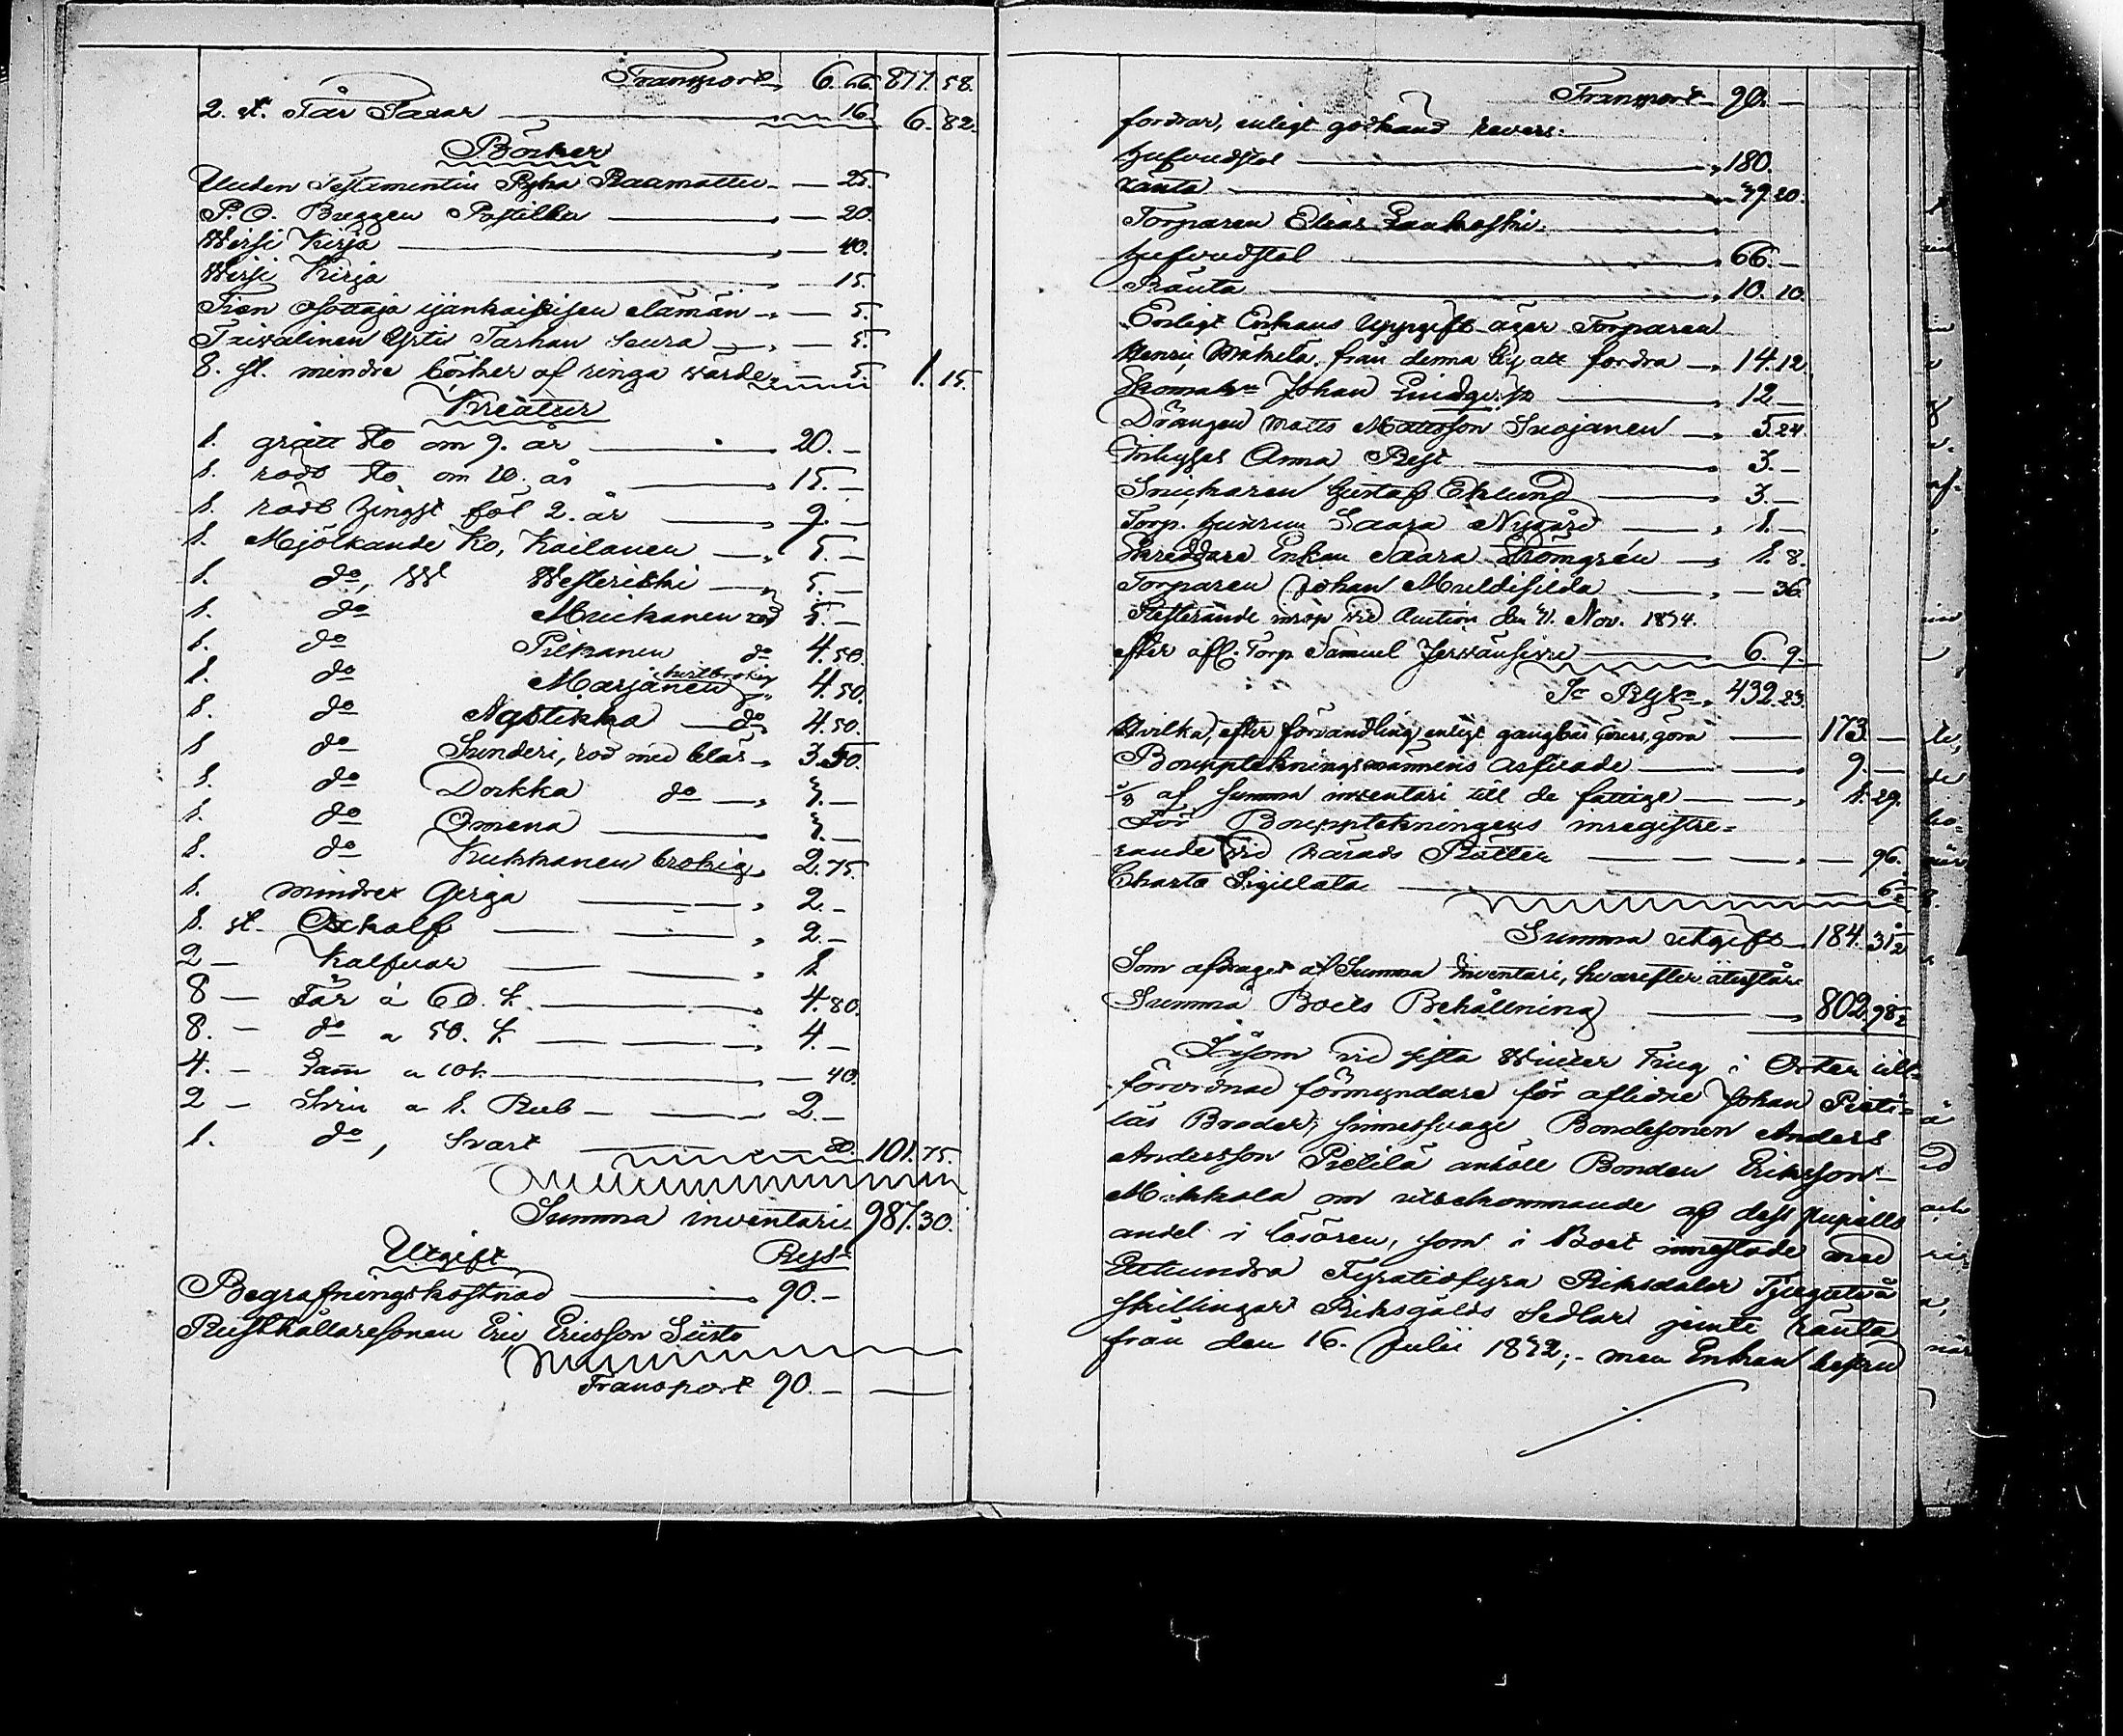 Transport 6. 66. 877. 58.
2. st. Får Saxar 16. 6. 82.
Böcker
Uuden Testamentin Pyhä Raamattu 25.
P. O. Postilla 20.
Wirsi Kirja 40.
Wirsi Kirja 15.
Tien osottaja ijankaikkisen elämän 5.
Taivalinen Yrti Tarhan Seura 5.
8. st. mindre böcker af ringa värde 5. 1. 15.
Kreatur
1. grått Sto om 9. år 20. –
1. rödt Sto om 10. år 15. –
1. rödt hingst föl 2. år 9. –
1. Mjölkande Ko, Kailanen 5. –
1. do, Westerikki 5. –
1. do Muikanen röd 5. –
1. do Pilkanen do 4. 50.
1. do Marjanen hvitbrokig 4. 50.
1. do do 4. 50.
1 do Sunderi, röd med bläs 3. 50.
1. do Dorkka do 3. –
1. do Omena 3. –
1. do Kukkanen brokig 2. 75.
1. mindre 2. –
1. st. Oxkalf 2. –
2 – Kalfvar 1
8 – Får á 60. k. 4. 80.
8. – do a 50. k. 4. –
4. – Lam a 10 k. – 40.
2 – Svin a 1. Rub – 2. –
1. do, svart 80. 101. 75.
Summa inventari 987. 30.
Utgift Rgs
Begrafningskostnad 90. –
Rusthållaresonen Eric Ericsson Siisto
Transport 90. –
Transport 90. –
fordrar, enligt godkänd revers.
hufvudstol 180.
ränta 39. 20.
Torparen Elias Laukoski
hufvudstol 66. –
Ränta 10. 10.
Enligt Enkans uppgift äger Torparen
Henric Mäkelä, från denna att fordra 14. 12.
Skomak. Johan Lindqvist 12 –
Drängen Matts Mattsson Suojanen 5. 24.
Inhyses Anna Rest 3. –
Snickaren Gustaf Eklund 3. –
Torp. hustrun Saara Nygård 1. –
Skreddare Enkan Saara Strömgrén 1. 8.
Torparen Johan – 36.
Resterande inrop vid Auction den Nov. 1834.
efter afl. Torp Samuel 6. 9.
432. 23.
Hvilka, efter förvandling enligt gångbar cours, göra 173 –
Bouppteckningsmännens arfvode 9. –
1/8 af summa inventari till de fattige 1. 29.
För Bouppteckningens inregistre=
rande vid Härads Rätten – 96.
Charta Sigillata 6 1/2
Summa utgift 184. 31 1/2
Som afdraget af Summa Inventari, hvarefter återstår
Summa Boets Behållning 802. 98 1/2
Såsom vid sista Winter Ting i Orten till=
förordnad förmyndare för aflidne Johan Pieti=
läs Broder, sinnessvage Bondesonen Anders
Andersson Pietilä anhöll Bonden Eriksson
Mikkola om utbekommande af dess pupills
andel i lösören, som i Boet innestode med
Ett hundra Fyratiofyra Riksdaler Tjugutvå
skillingar Riksgälds Sedlar jemte ränta
från den 16. Julii 1832; – men Enkan